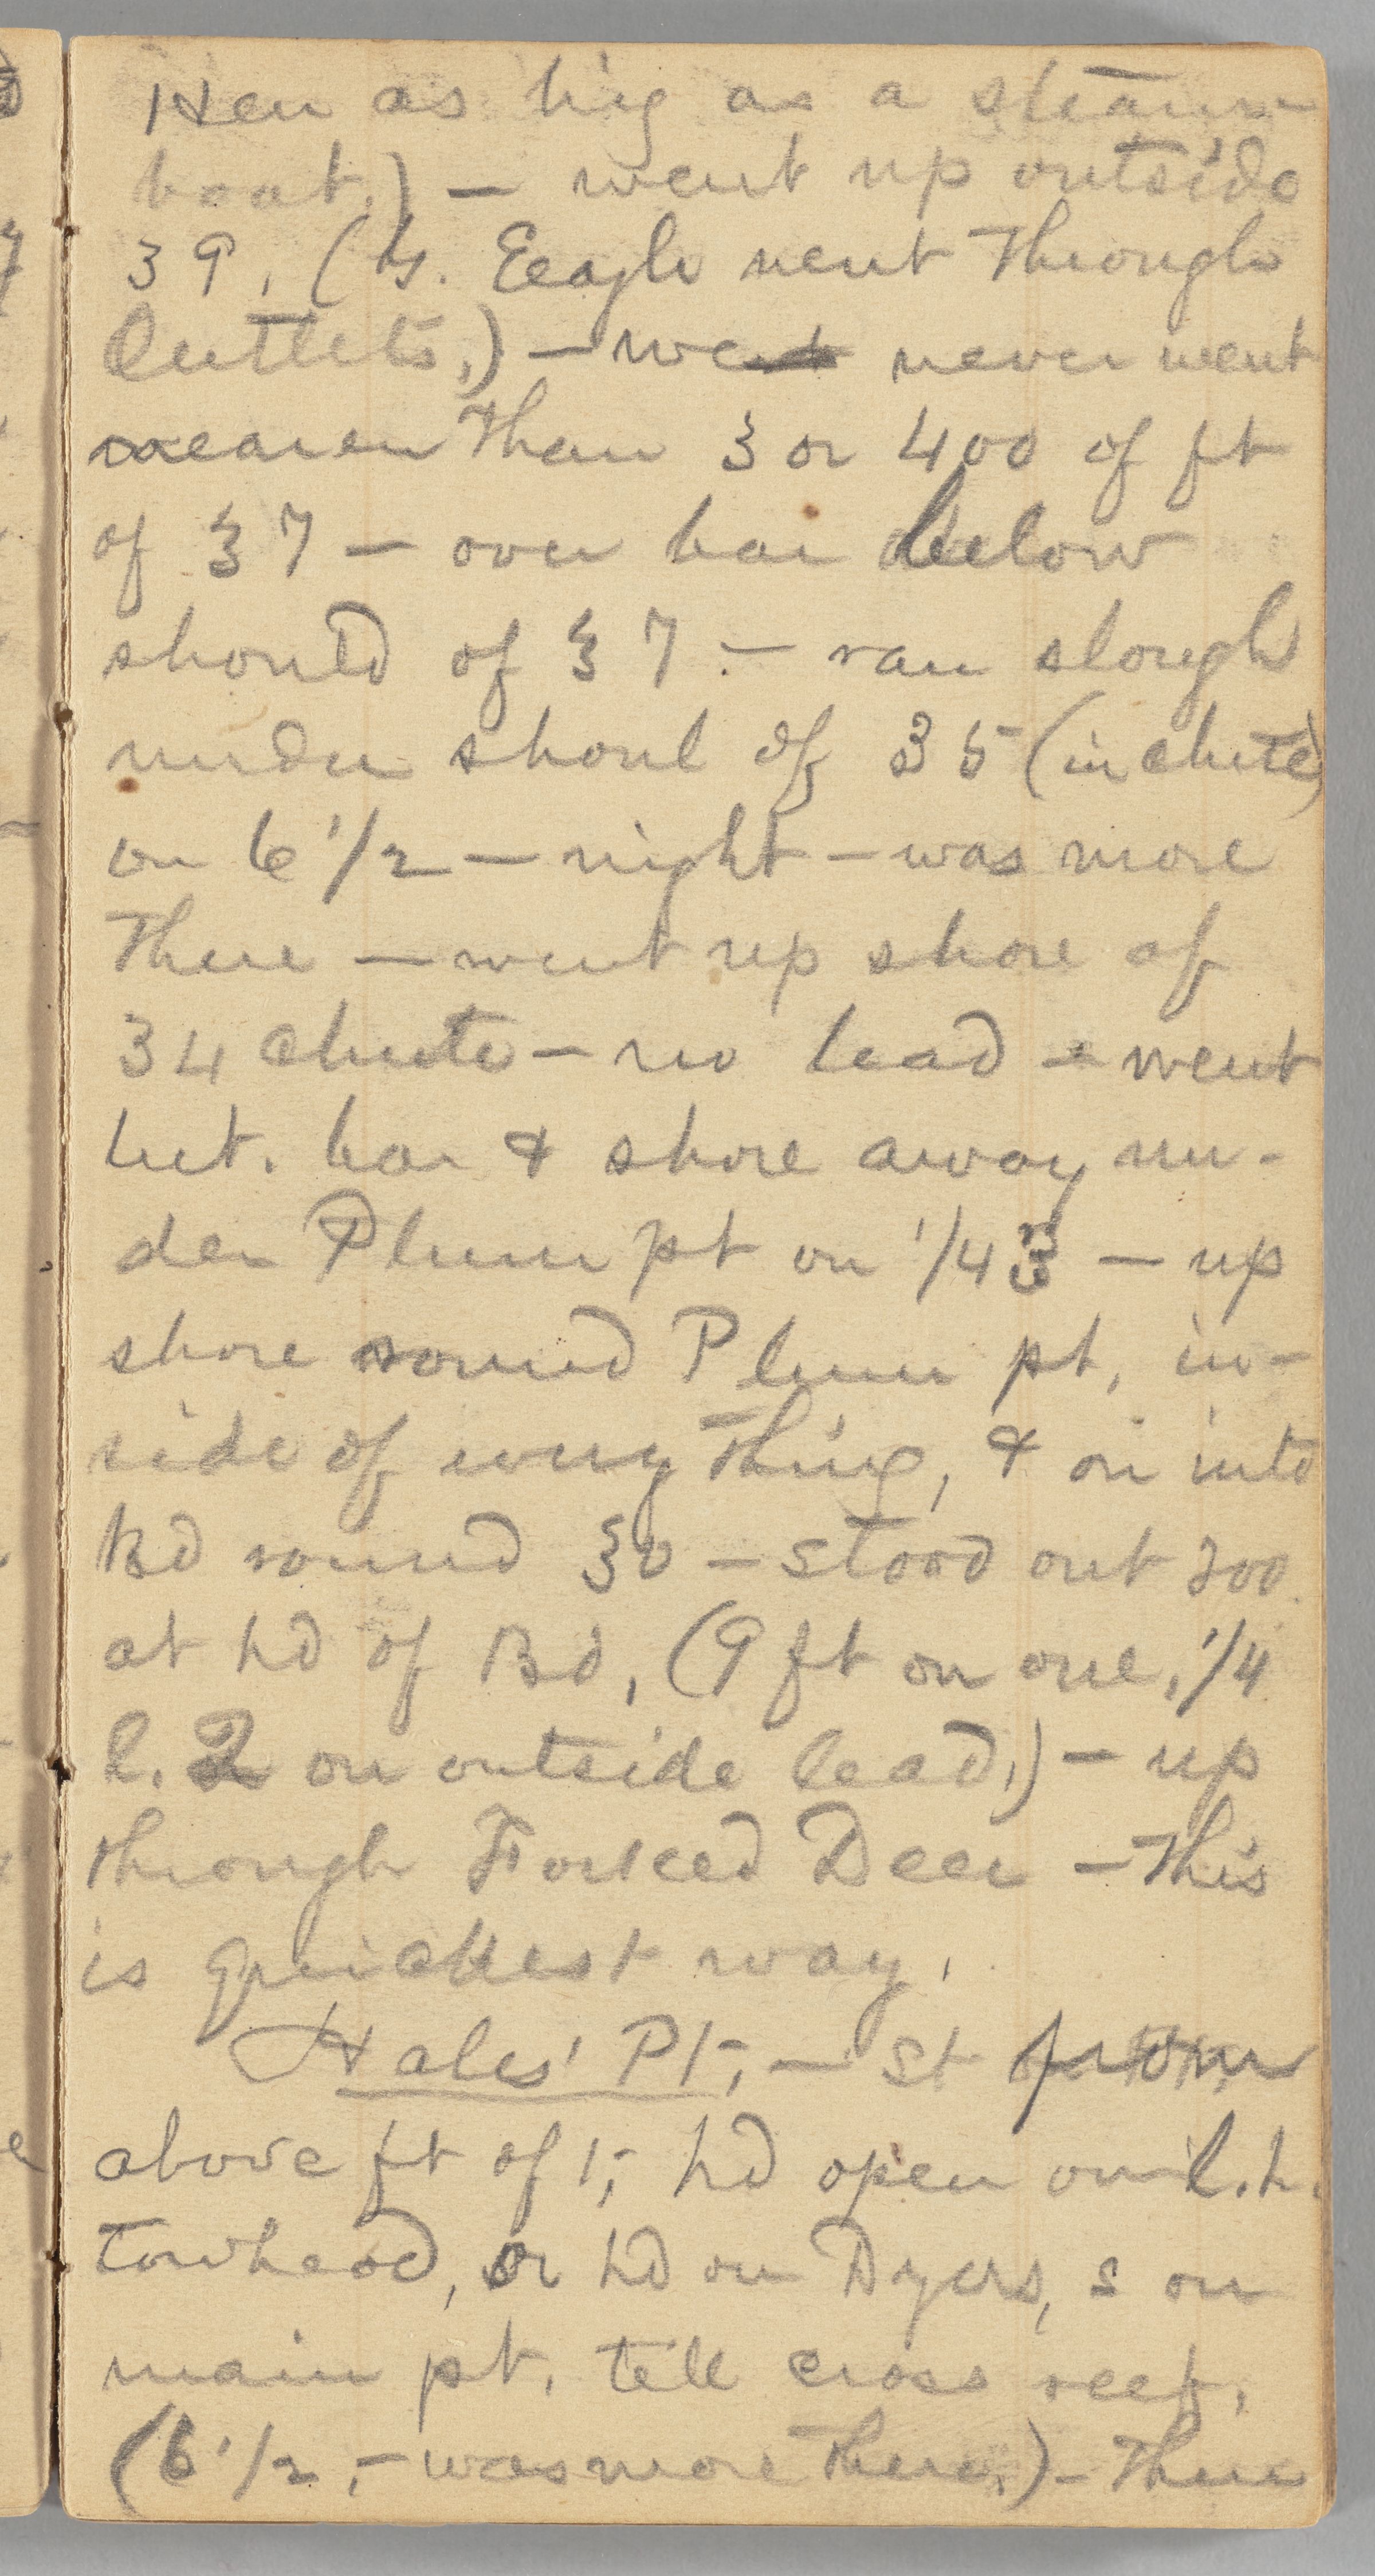 Hen as big as a steam-
boat.) — went up outside
39, (G. Eeagle went through
Outlets,) — we never went
nearer than 3 or 400 of ft
of 37 — over bar below
should of 37 — ran slough
under shoul of 35 (in chute)
on 6 1/2 — night — was more
there — went up shore of
34 chute — no lead — went
bet. bar & shore away un-
der Plum pt on 1/4 3 — up
shore round Plum pt, in-
side of every thing, & on into
Bd round 30 — stood out 200
at hd of Bd, (9 ft on one, 1/4
l. 2 on outside lead,) — up
through Forked Deer — this
is quickest way.
Hales' Pt, — St from
above ft of 1, hd open on l.h.
towhead, or hd on Dyers, s on
main pt. till cross reef,
(6 1/2, — was more there,) — Then